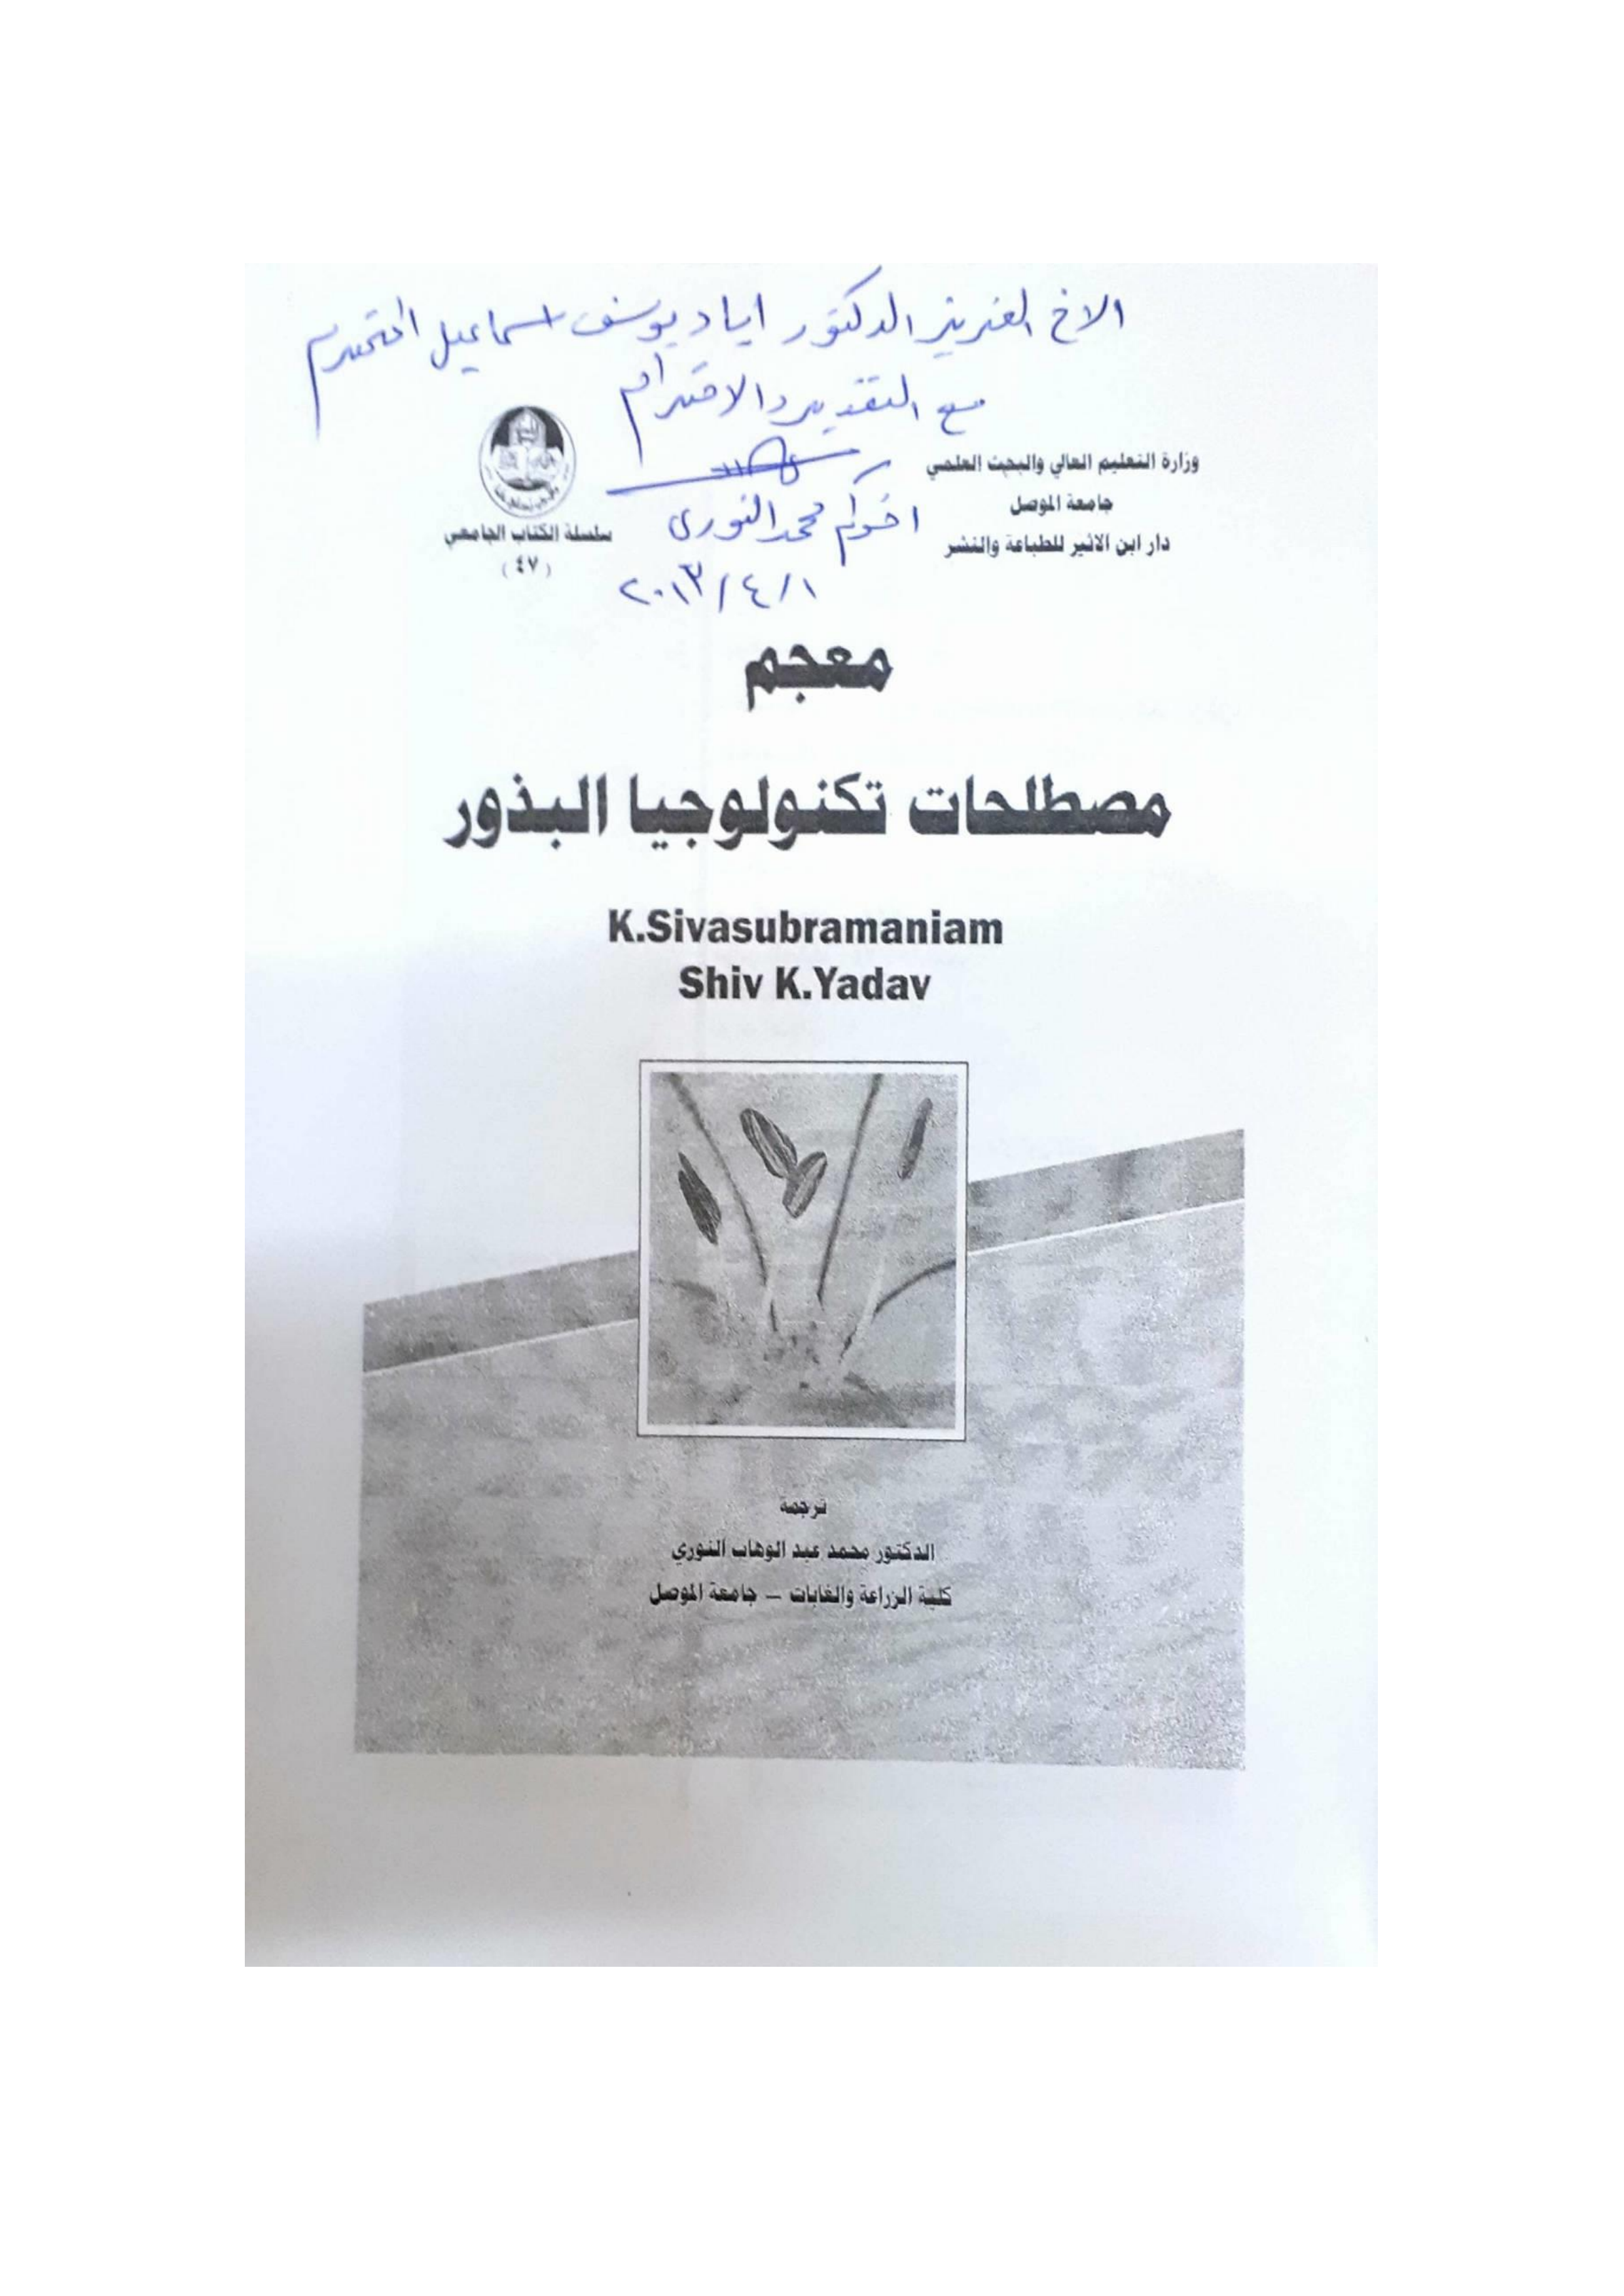 الاخ العزيز الدكتور اياد يوسف اسماعيل المحترم
مع التقدير والاحترام
اخوكم محمد النوري
٢٠١٣/٤/١
وزارة التعليم العالي والبحث العلمي
جامعة الموصل
دار ابن الاثير للطباعة والنشر
سلسلة الكتاب الجامعي
(٤٧)
معجم
مصطلحات تكنولوجيا البذور
K.Sivasubramaniam
Shiv K.Yadav
ترجمة
الدكتور محمد عبد الوهاب النوري
كلية الزراعة والغابات – جامعة الموصل